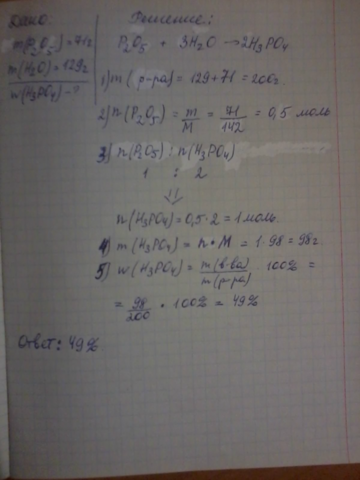 Дано:
m(P₂O₅)=71г
m(H₂O)=129г
w(H₃PO₄)-?
Решение:
P₂O₅ + 3H₂O → 2H₃PO₄
1) m(р-ра) = 129+71 = 200г.
2) n(P₂O₅) = m/M = 71/142 = 0,5 моль
3) n(P₂O₅) : n(H₃PO₄)
1 : 2
⇓
n(H₃PO₄)=0,5·2=1моль.
4) m(H₃PO₄) = n·M = 1·98=98г.
5) w(H₃PO₄) = m(в-ва)/m(р-ра) · 100% =
= 98/200 · 100% = 49%
Ответ: 49%